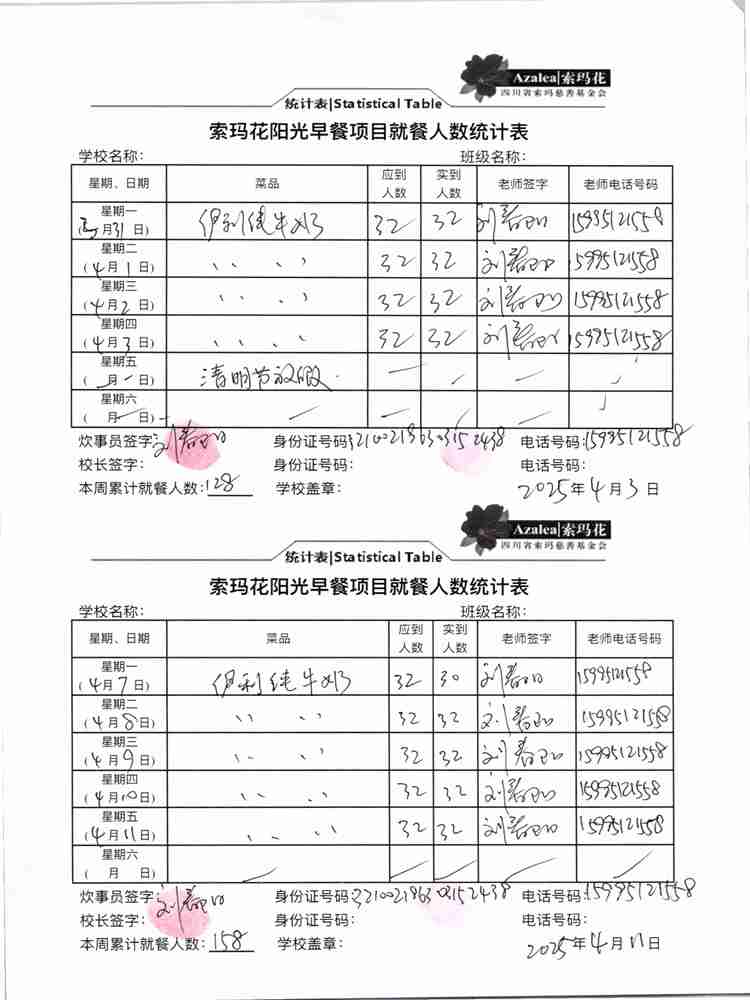 Azalea|索玛花
四川省索玛慈善基金会
统计表|Statistical Table
索玛花阳光早餐项目就餐人数统计表
学校名称： 班级名称：
星期、日期 菜品 应到人数 实到人数 老师签字 老师电话号码
星期一 (3月31日) 伊利纯牛奶 32 32 刘 15995121558
星期二 (4月1日) 〃 〃 32 32 刘 15995121558
星期三 (4月2日) 〃 〃 32 32 刘 15995121558
星期四 (4月3日) 〃 〃 32 32 刘 15995121558
星期五 ( 月 日) 清明节放假.
星期六 ( 月 日)
炊事员签字：刘 身份证号码： 电话号码：15995121558
校长签字： 身份证号码： 电话号码：
本周累计就餐人数：128 学校盖章： 2025年4月3日
Azalea|索玛花
四川省索玛慈善基金会
统计表|Statistical Table
索玛花阳光早餐项目就餐人数统计表
学校名称： 班级名称：
星期、日期 菜品 应到人数 实到人数 老师签字 老师电话号码
星期一 (4月7日) 伊利纯牛奶 32 30 刘 15995121558
星期二 (4月8日) 〃 〃 32 32 刘 15995121558
星期三 (4月9日) 〃 〃 32 32 刘 15995121558
星期四 (4月10日) 〃 〃 32 32 刘 15995121558
星期五 (4月11日) 〃 〃 32 32 刘 15995121558
星期六 ( 月 日)
炊事员签字：刘 身份证号码： 电话号码：15995121558
校长签字： 身份证号码： 电话号码：
本周累计就餐人数：158 学校盖章： 2025年4月11日